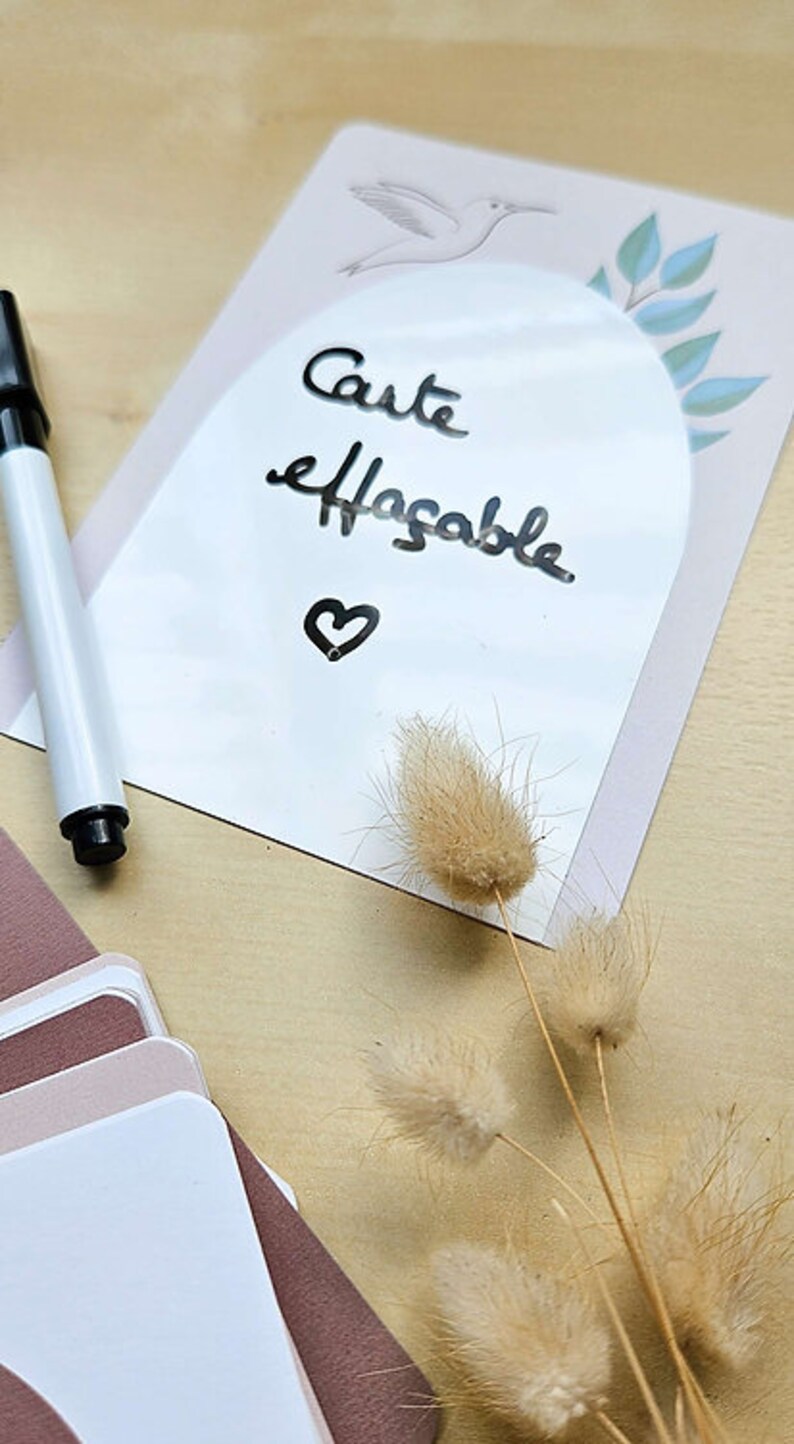 Carte
effaçable